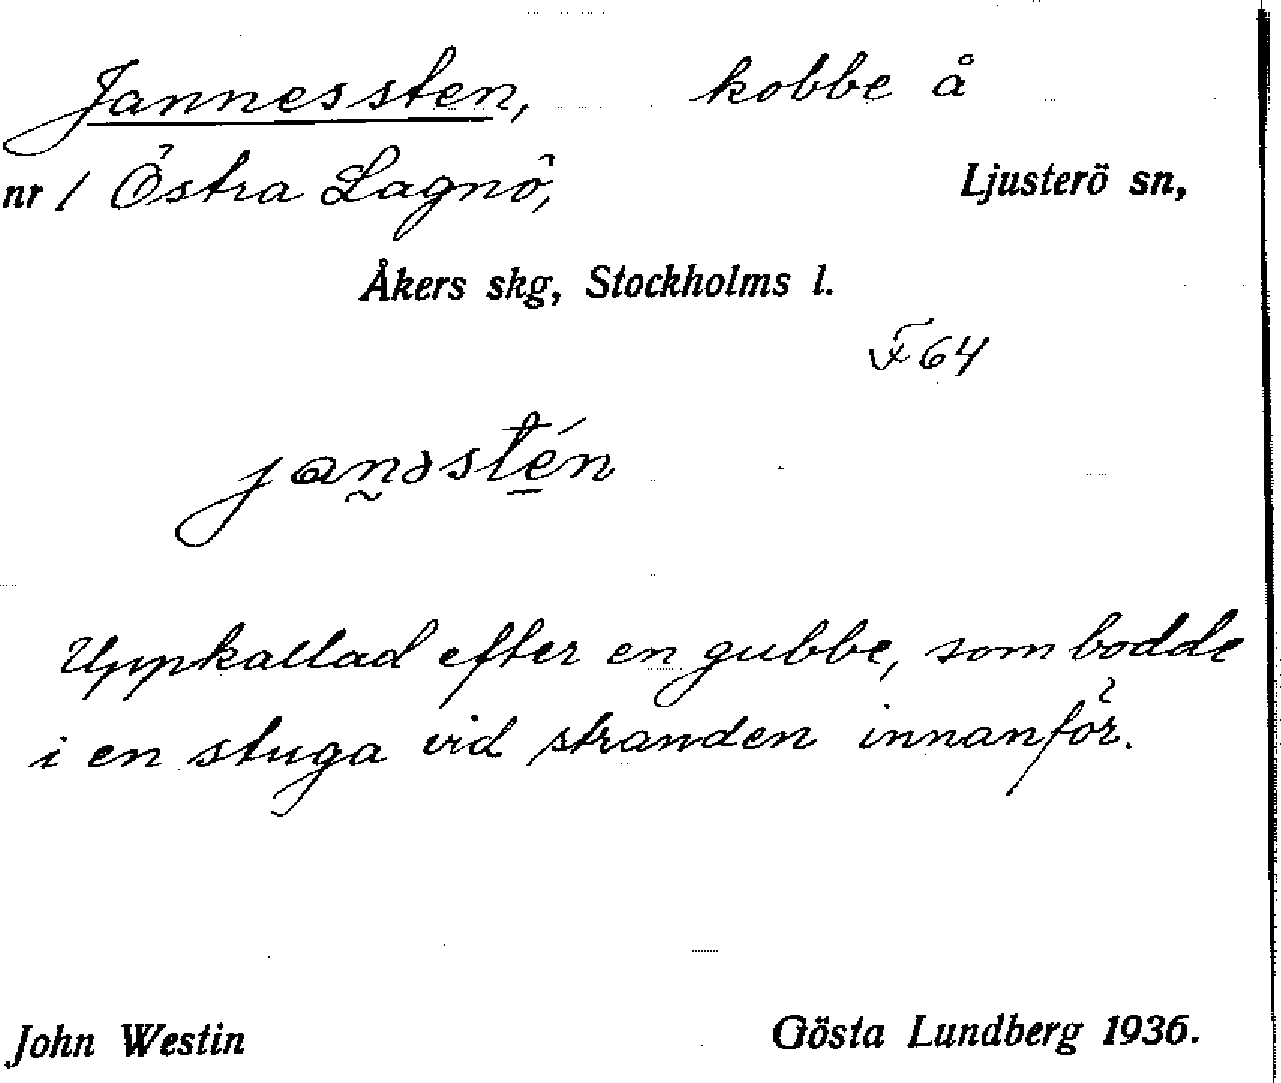 Jannessten, kobbe å
nr 1 Östra Lagnö, Ljusterö sn,
Åkers skg, Stockholms l.
F 64
jan̰əsté̱n
Uppkallad efter en gubbe, som bodde
i en stuga vid stranden innanför.
John Westin Gösta Lundberg 1936.